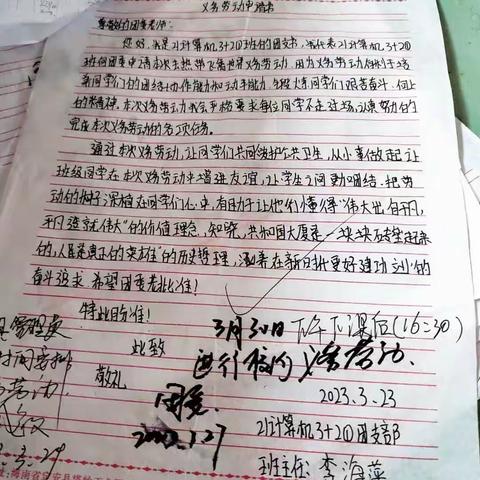 义务劳动申请书
尊敬的团委老师:
您好,我是21计算机3+2①班的团支书,我代表21计算机3+2①
班向团委申请本次去热带飞禽世界义务劳动,因为义务劳动有利于培
养同学们的团结协作能力和动手能力,
的精神,本次义务劳动我会严格要求每位同学不走过场,认真努力的
完成本次义务劳动的各项任务。
通过本次义务劳动,让同学们共同维护公共卫生,从小事做起让
班级同学在本次义务劳动中增进友谊,让学生之间更加团结,把劳
动的种子深植在同学们心中,有助于让他们懂得“伟大出自平凡,
平凡造就伟大”的价值理念,知晓,共和国大厦是一块块砖垒起来
的,人民是真正的英雄”的历史哲理,涵养在新时代更好建功立业的
奋斗追求,希望团委老师批准!
特此申请!
3月30日下午下课后(16:30)
此致
进行校内义务劳动.
敬礼
团委.
2023.3.27
2023.3.23
21计算机3+2①团支部
班主任:李海萍